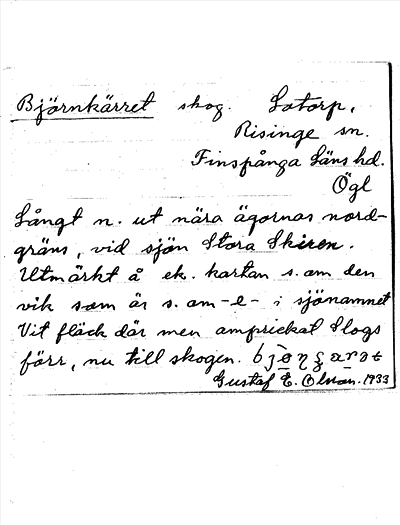 Björnkärret skog. Lotorp,
Risinge sn.
Finspånga Läns hd.
Ögl
Långt n. ut nära ägornas nord-
gräns, vid sjön Stora Skiren.
Utmärkt å ek. kartan s. om den
vik som är s. om -e- i sjönamnet
Vit fläck där men amprickat Slogs
förr, nu till skogen.
Gustaf E. Olson. 1933